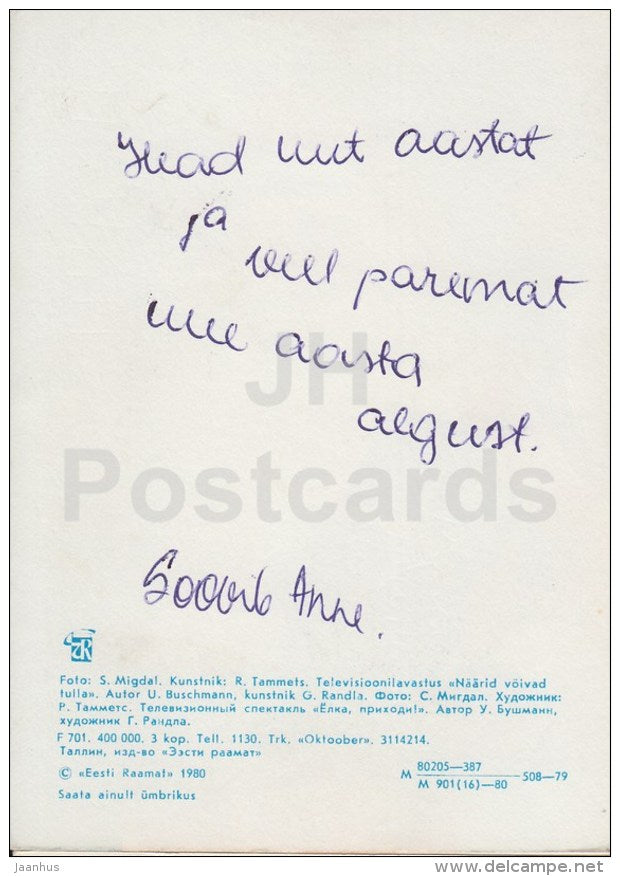 Head uut aastat
ja
veel paremat
uue aasta
algust.
JH
Postcards
Soovib Anne.
Foto: S. Migdal. Kunstnik: R. Tammets. Televisioonilavastus «Näärid võivad
tulla». Autor U. Buschmann, kunstnik G. Randla. Фото: С. Мигдал. Художник:
Р. Тамметс. Телевизионный спектакль «Ёлка, приходи!». Автор У. Бушманн,
художник Г. Рандла.
F 701. 400 000. 3 kop. Tell. 1130. Trk. «Oktoober». 3114214.
Таллин, изд-во «Ээсти раамат»
© «Eesti Raamat» 1980
М 80205—387
М 901(16)—80
508—79
Saata ainult ümbrikus
jaanhus
www.delcampe.net